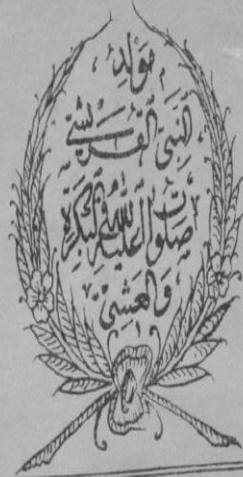 مَوْلِدُ
النَّبِيِّ الْقُرَشِيِّ
صَلَوَاتُ اللهِ عَلَيْهِ فِي الْبُكْرَةِ
وَالْعَشِيِّ